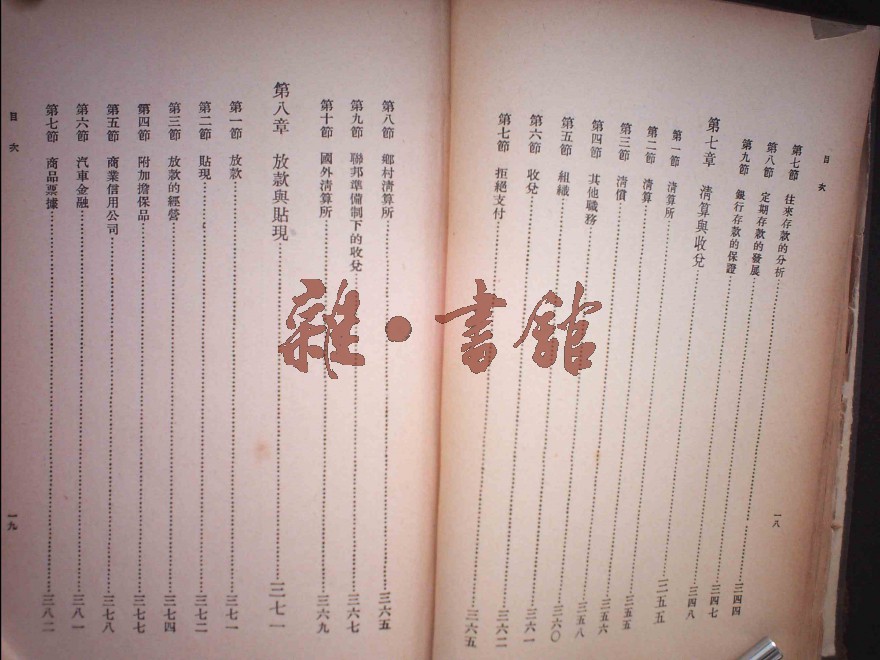 目次
一八
第七節 往來存款的分析……三四四
第八節 定期存款的發展……三四七
第九節 銀行存款的保證……三四八
第七章 清算與收兌……三五五
第一節 清算所……三五五
第二節 清算……三五六
第三節 清償……三五八
第四節 其他職務……三六〇
第五節 組織……三六一
第六節 收兌……三六二
第七節 拒絕支付……三六五
第八節 鄉村清算所……三六五
第九節 聯邦準備制下的收兌……三六七
第十節 國外清算所……三六九
第八章 放款與貼現……三七一
第一節 放款……三七一
第二節 貼現……三七二
第三節 放款的經營……三七四
第四節 附加擔保品……三七七
第五節 商業信用公司……三七八
第六節 汽車金融……三八一
第七節 商品票據……三八二
目次
一九
雜·書館